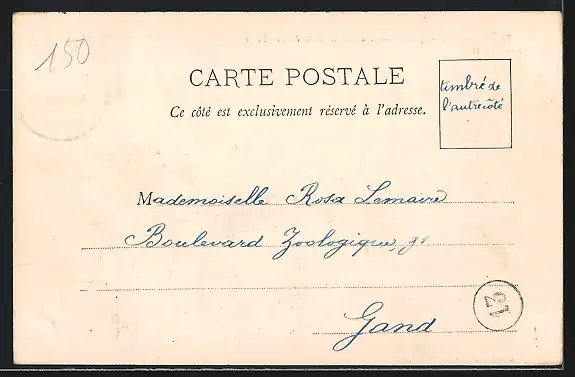 150
CARTE POSTALE
Ce côté est exclusivement réservé à l'adresse.
timbré de
l'autre côté
Mademoiselle Rosa Lemaire
Boulevard Zoologique,
Gand
13